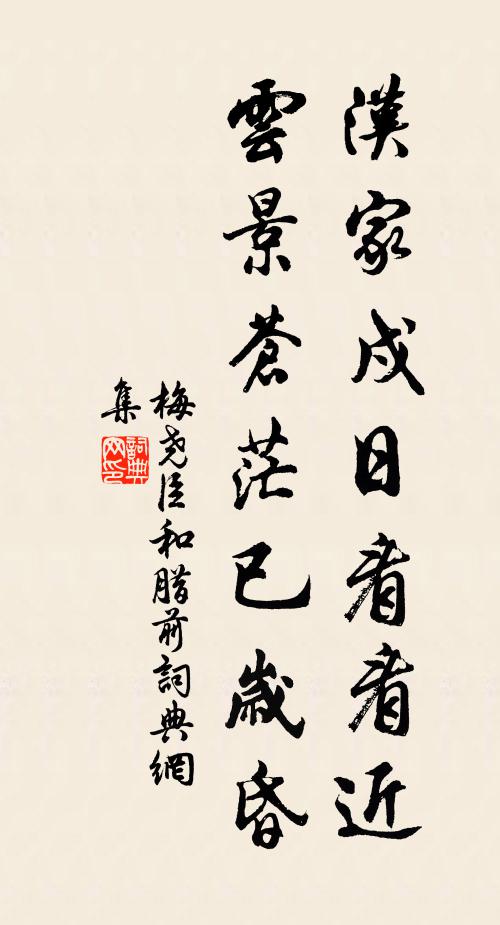 漢家戌日看看近
雲景蒼茫已歲昏
梅堯臣和腊前詞典網
集
詞典网印